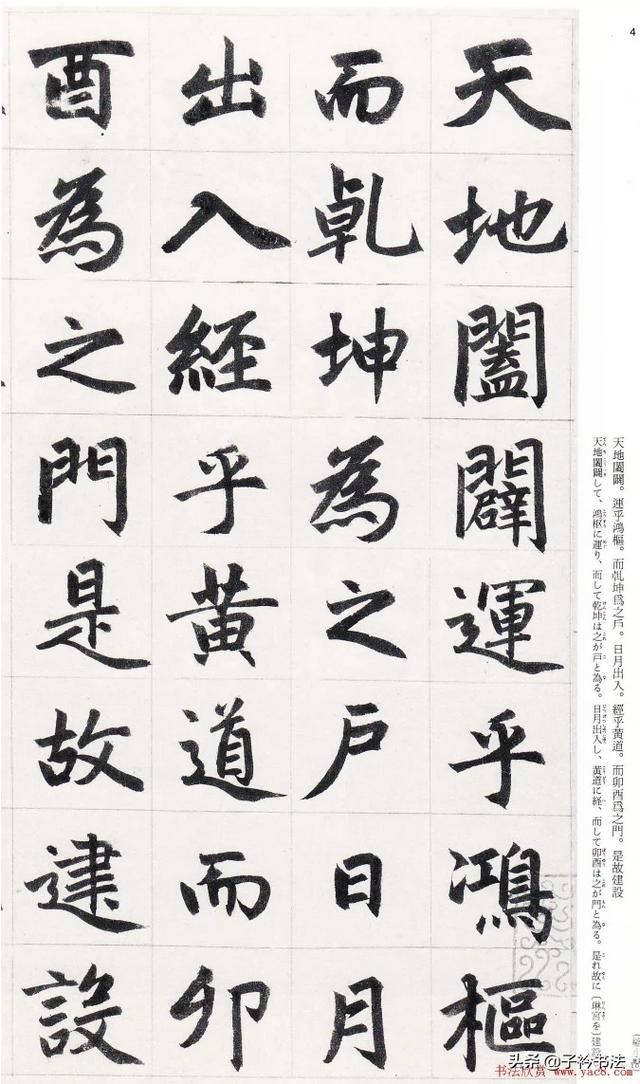 4
天地闔闢。運乎鴻樞。而乹坤爲之戶。日月出入。經乎黃道。而卯酉爲之門。是故建設
天地闔闢して、鴻枢に運り、而して乾坤は之が戸と為る。日月出入し、黄道に経、而して卯酉は之が門と為る。是れ故に〔琳宮を〕建設
天地闔闢運乎鴻樞
而乹坤為之戶日月
出入經乎黃道而卯
酉為之門是故建設
头条 @子衿书法
书法欣赏 www.yac8.com